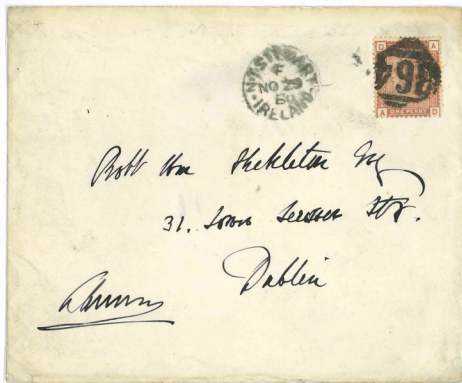 Nt STEWART
F
NO 29
80
IRELAND
D A
364
ONE PENNY
A D
Robt Wm Shekleton Esq
31. Lower Leeson Str.
Dublin